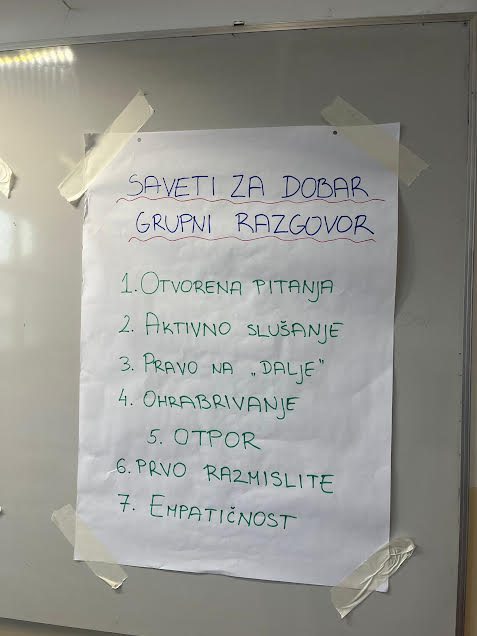 SAVETI ZA DOBAR
GRUPNI RAZGOVOR
1. OTVORENA PITANJA
2. AKTIVNO SLUŠANJE
3. PRAVO NA „DALJE"
4. OHRABRIVANJE
5. OTPOR
6. PRVO RAZMISLITE
7. EMPATIČNOST